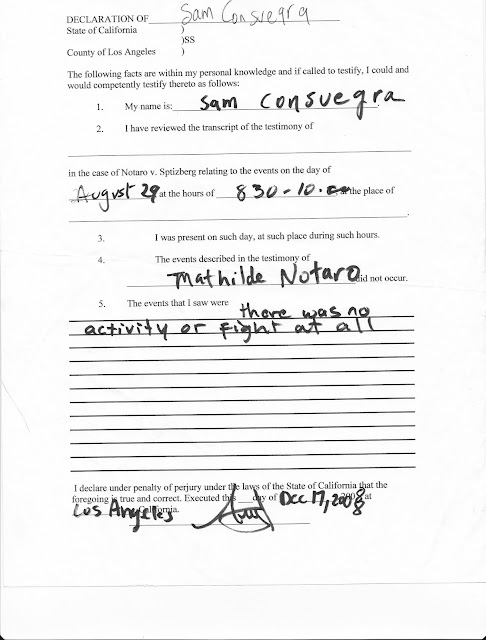 DECLARATION OF Sam Consuegra
State of California )
)SS
County of Los Angeles )
The following facts are within my personal knowledge and if called to testify, I could and
would competently testify thereto as follows:
1. My name is: Sam Consuegra
2. I have reviewed the transcript of the testimony of
in the case of Notaro v. Sptizberg relating to the events on the day of
August 29 at the hours of 830-10. the place of
3. I was present on such day, at such place during such hours.
4. The events described in the testimony of
Mathilde Notaro did not occur.
5. The events that I saw were there was no
activity or fight at all
I declare under penalty of perjury under the laws of the State of California that the
foregoing is true and correct. Executed this day of Dec 17, 2008 at
Los Angeles California.